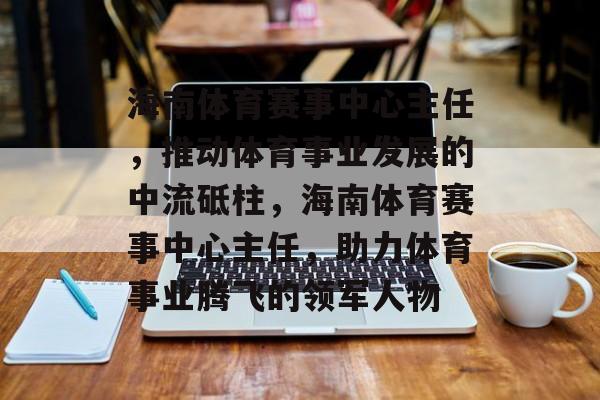 海南体育赛事中心主任
，推动体育事业发展的
中流砥柱，海南体育赛
事中心主任，助力体育
事业腾飞的领军人物